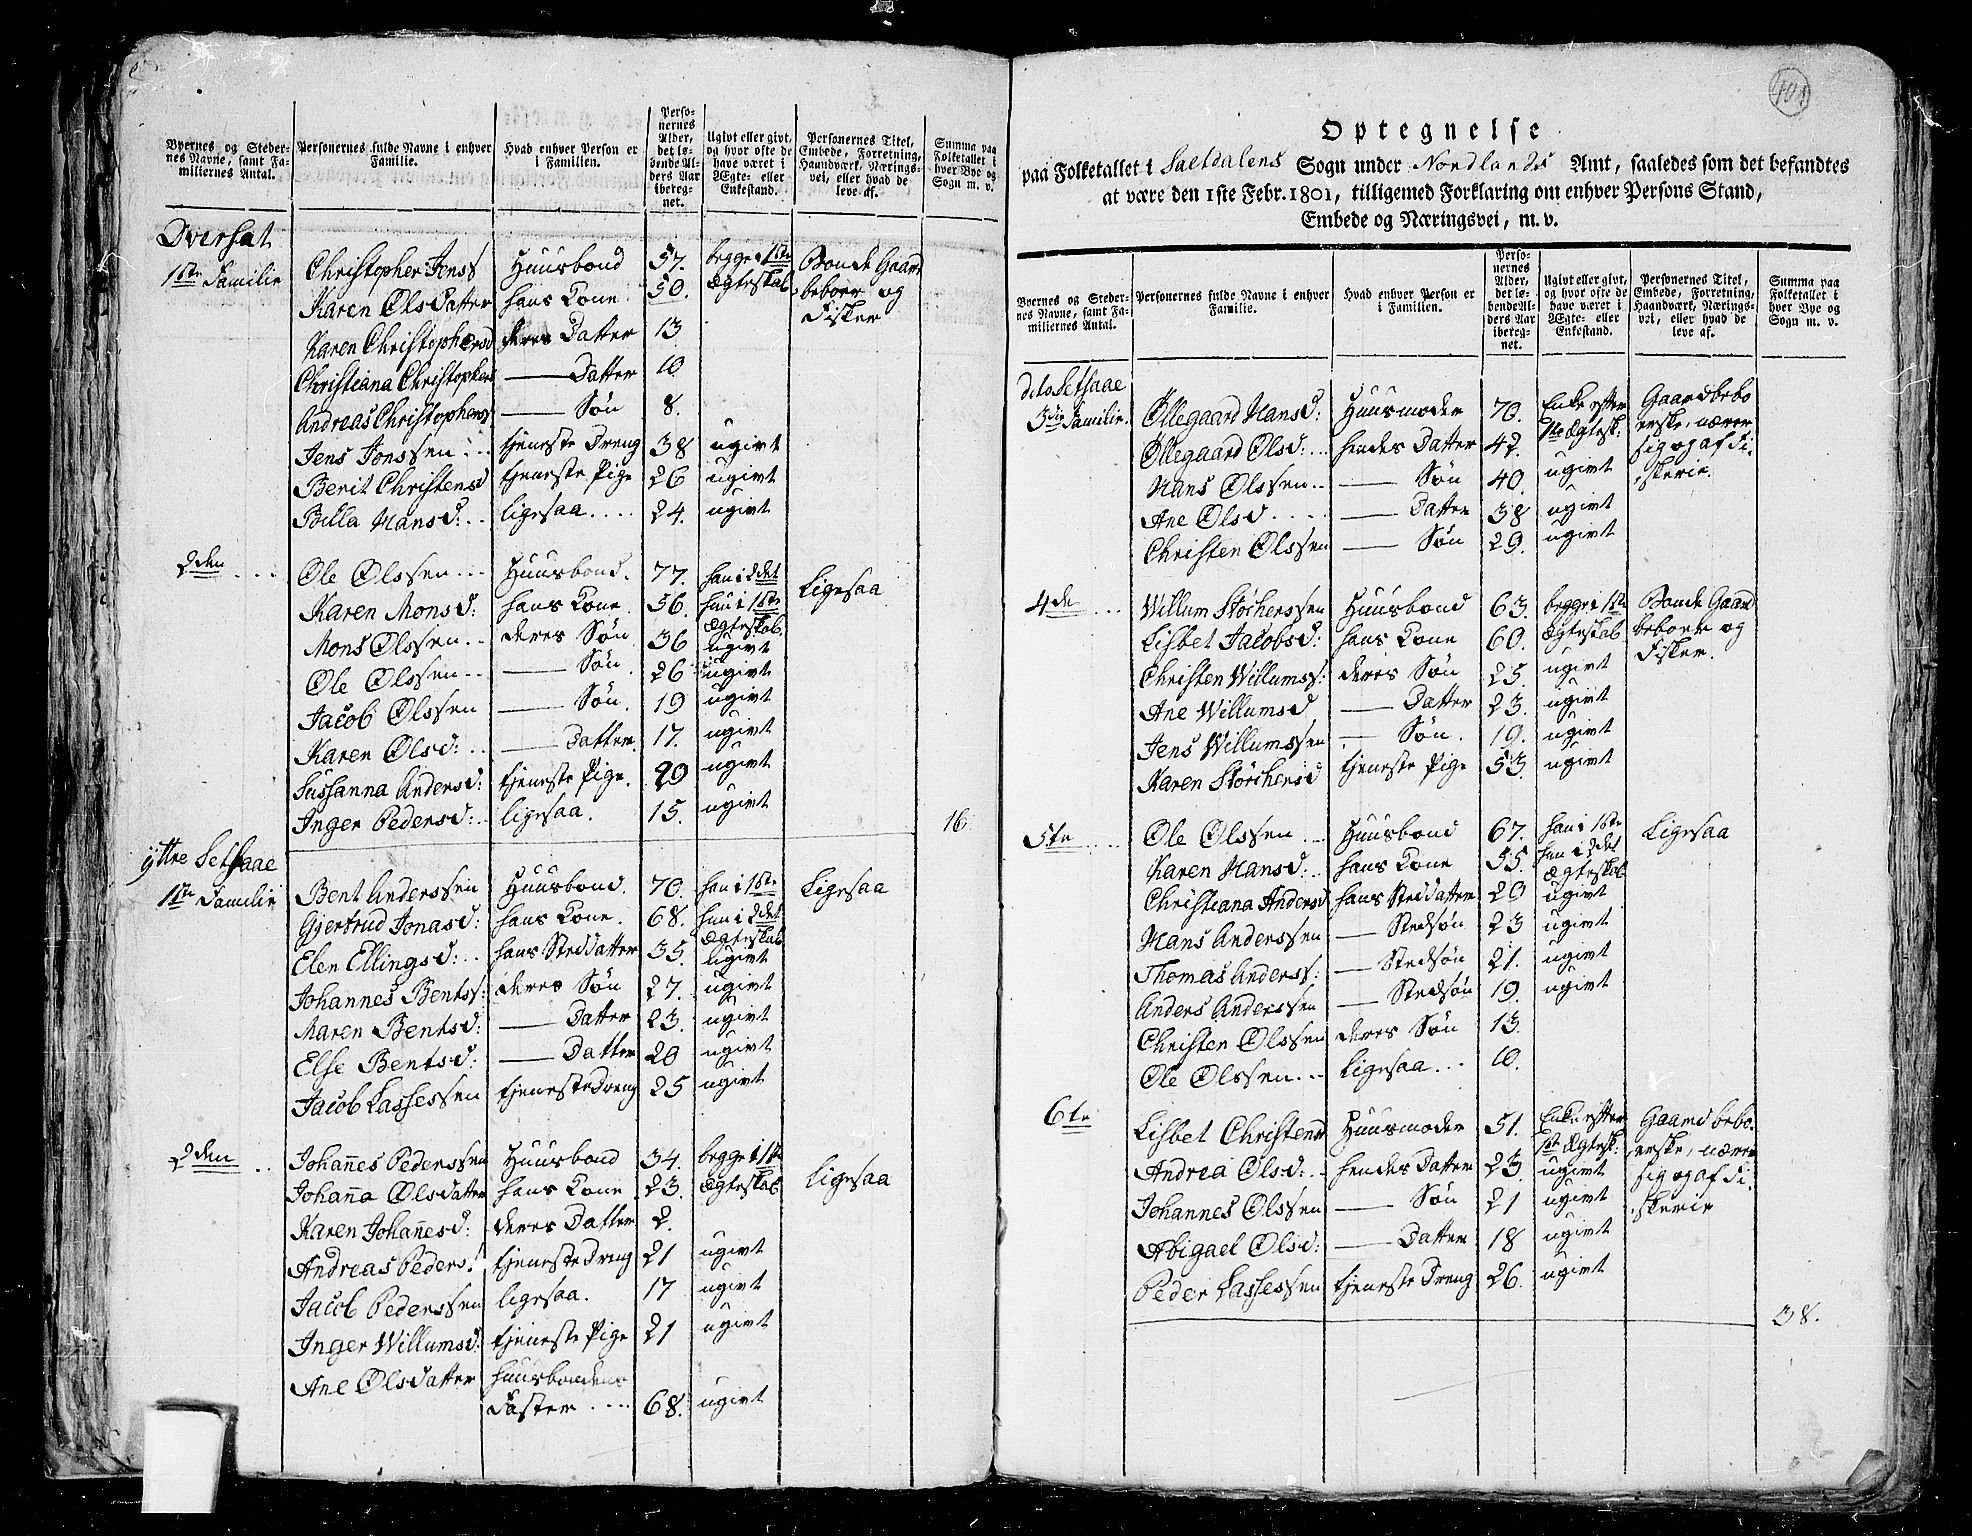 Byernes og Steder-
nes Navne, samt Fa-
miliernes Antal.
Personernes fulde Navne i enhver
Familie.
Hvad enhver Person er
i Familien.
Perso-
nernes
Alder,
det lø-
bende Al-
ders Aar
ibereg-
net.
Ugivt eller givt,
og hvor ofte de
have været i
Ægte- eller
Enkestand.
Personernes Titel,
Embede, Forretning,
Haandværk, Nærings-
vei, eller hvad de
leve af.
Summa paa
Folketallet i
hver Bye og
Sogn m. v.
1ste Familie Christopher Jens Huusbond 57. begge i 1ste Bonde Gaard
Karen Olsdatter hans Kone 50. Ægteskab beboer og
Fisker
Karen Christophersd deres Datter 13.
Christiana Christophers — Datter 10
Andreas Christophers — Søn 8.
Jens Jonssen ... tjeneste Dreng 38 ugivt
Berit Christensd tjeneste Pige 26 ugivt
Hansd: .. ligesaa .... 24. ugivt
2den ... Ole Olssen ... Huusbond. 77. han i 2det Ligesaa
Karen Monsd: hans Kone. 56. hun i 1ste
Ægteskab.
Mons Olssen .. deres Søn 36 ugivt
Ole Olssen .. — Søn 26 ugivt
Jacob Olssen — Søn. 19 ugivt
Karen Olsd: .. — Datter. 17. ugivt
Sussanna Andersd: tjeneste Pige. 20 ugivt
Inger Pedersd: .. ligesaa. 15. ugivt
16.
ÿttre Setsaae
1ste Familie Bent Anderssen Huusbond. 70. han i 1ste Ligesaa
Gjertrud Jonasd: hans Kone. 68. hun i 2det
Ægteskab
Elen Ellingsd: .. hans Steddatter 35. ugivt
Johannes Bentss: deres Søn 27. ugivt
Maren Bentsd: — Datter 23. ugivt
Else Bentsd: — Datter 20 ugivt
Jacob Lassessen tjeneste Dreng 25 ugivt
2den .. Johañes Pederssen Huusbond 34. begge i 1ste Ligesaa
Johaña Olsdatter hans Kone 23. Ægteskab
Karen Johañesd: deres Datter 2.
Andreas Peders: tjeneste Dreng 21 ugivt
Jacob Pederssen ligesaa. 17 ugivt
Inger Willumsd: tjeneste Pige 21 ugivt
Ane Olsdatter Huusbondens
Faster .... 68. ugivt
401
Optegnelse
paa Folketallet i Saltdalens Sogn under Nordlands Amt, saaledes som det befandtes
at være den 1ste Febr. 1801, tilligemed Forklaring om enhver Persons Stand,
Embede og Næringsvei, m. v.
Byernes og Steder-
nes Navne, samt Fa-
miliernes Antal.
Personernes fulde Navne i enhver
Familie.
Hvad enhver Person er
i Familien.
Perso-
nernes
Alder,
det lø-
bende Al-
ders Aar
ibereg-
net.
Ugivt eller givt,
og hvor ofte de
have været i
Ægte- eller
Enkestand.
Personernes Titel,
Embede, Forretning,
Haandværk, Nærings-
vei, eller hvad de
leve af.
Summa paa
Folketallet i
hver Bye og
Sogn m. v.
dito Setsaae
3die Familie. Øllegaard Hansd: Huusmoder 70. Enke efter Gaardbebo
1te Ægtesk: erske, nærer
Øllegaard Olsd: .. hendes Datter 42. ugivt sig og af Fi-
Hans Olssen .. — Søn 40. ugivt skerie.
Ane Olsd .... — Datter 38 ugivt
Christen Olssen — Søn 29. ugivt
4de ... Willum Störkerssen Huusbond 63. begge i 1ste Bonde Gaard
Lisbet Jacobsd: hans Kone 60. Ægteskab beboer og
Christen Willumss: deres Søn 25. ugivt Fisker.
Ane Willumsd — Datter 23. ugivt
Jens Willumssen — Søn. 19. ugivt
Karen Störkersd tjeneste Pige 53. ugivt
5te .... Ole Olssen ... Huusbond 67. han i 1ste Ligesaa
Karen Hansd: .. hans Kone 55. hun i 2det
Ægteskab
Christiana Andersd hans Steddatter 29 ugivt
Hans Anderssen — Stedsøn 23 ugivt
Thomas Anderss: — Stedsøn 21. ugivt
Anders Anderssen — Stedsøn 19. ugivt
Christen Olssen deres Søn 13.
Ole Olssen ... Ligesaa ... 10.
6te Lisbet Christensd Huusmoder 51. Enke efter Gaardbebo-
1ste Ægtesk: erske, nærer
Andrea Olsd: .. hendes Datter 23. ugivt sig og af Fi-
Johannes Olssen — Søn 21 ugivt skerie
Abigael Olsd: — Datter 18 ugivt
Peder Lassessen tjeneste Dreng 26. ugivt
38.